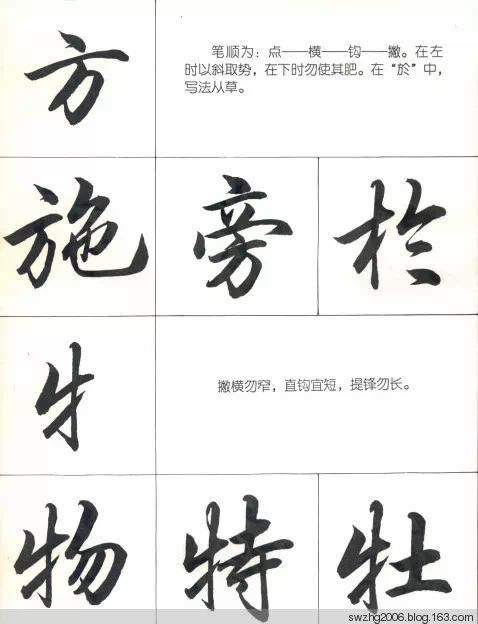 方
笔顺为：点——横——钩——撇。在左
时以斜取势，在下时勿使其肥。在“於”中，
写法从草。
施 旁 於
牜
撇横勿窄，直钩宜短，提锋勿长。
物 特 牡
swzhg2006.blog.163.com